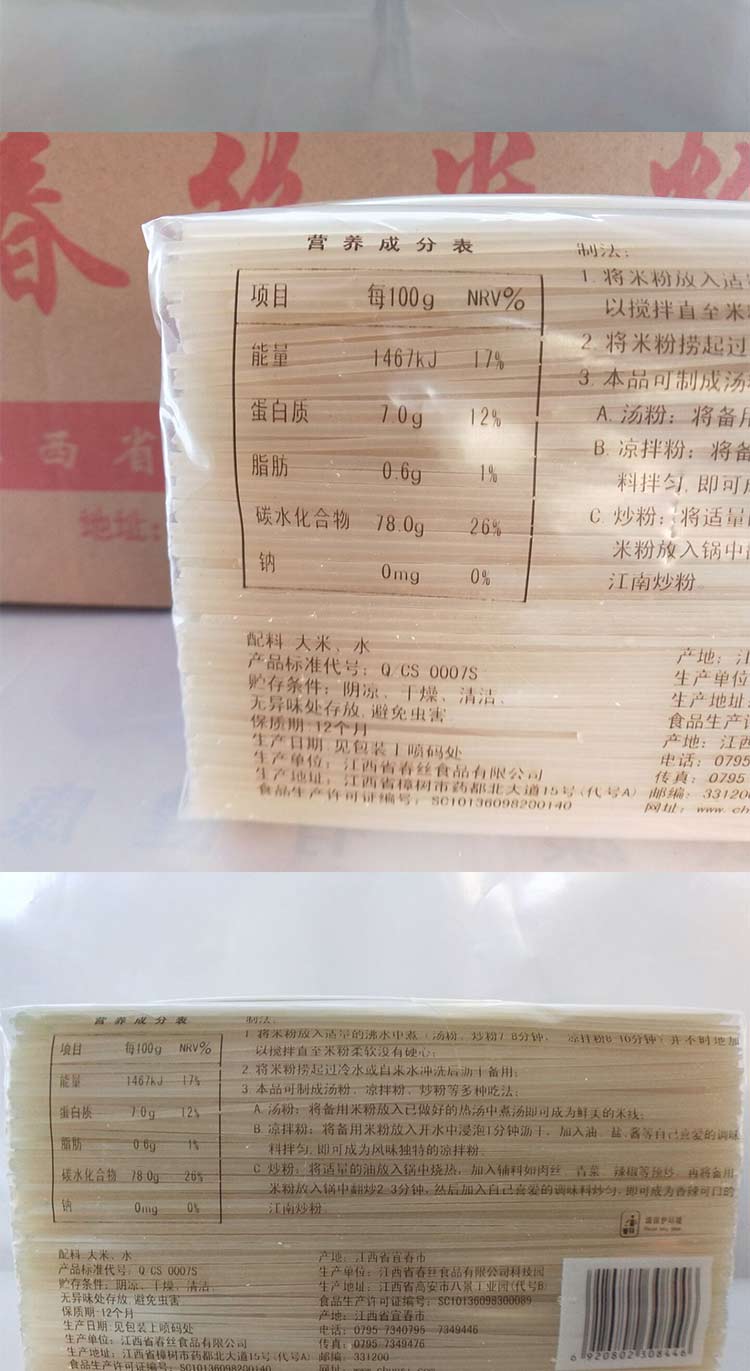 春丝米粉
西省
地址:
营养成分表
项目 每100g NRV%
能量 1467kJ 17%
蛋白质 7.0g 12%
脂肪 0.6g 1%
碳水化合物 78.0g 26%
钠 0mg 0%
制法:
1.将米粉放入适
以搅拌直至米
2.将米粉捞起过
3.本品可制成汤
A.汤粉：将备用
B.凉拌粉：将备
料拌匀,即可
C.炒粉：将适量
米粉放入锅中
江南炒粉
配料 大米、水
产品标准代号：Q/CS 0007S
贮存条件：阴凉、干燥、清洁、
无异味处存放,避免虫害
保质期:12个月
生产日期 见包装上喷码处
生产单位：江西省春丝食品有限公司
生产地址：江西省樟树市药都北大道15号(代号A)
食品生产许可证编号：SC10136098200140
产地：江
生产单位
生产地址:
食品生产许
产地：江西
电话：0795
传真：0795
邮编：33120
网址：www.ch
营养成分表
项目 每100g NRV%
能量 1467kJ 17%
蛋白质 7.0g 12%
脂肪 0.6g 1%
碳水化合物 78.0g 26%
钠 0mg 0%
制法:
1.将米粉放入适量的沸水中煮（汤粉、炒粉7-8分钟， 凉拌粉8-10分钟）并不时地加
以搅拌直至米粉柔软没有硬心;
2.将米粉捞起过冷水或自来水冲洗后沥干备用;
3.本品可制成汤粉、凉拌粉、炒粉等多种吃法:
A.汤粉：将备用米粉放入已做好的热汤中煮汤即可成为鲜美的米线;
B.凉拌粉：将备用米粉放入开水中浸泡1分钟沥干，加入油、盐、酱等自己喜爱的调味
料拌匀,即可成为风味独特的凉拌粉.
C.炒粉：将适量的油放入锅中烧热，加入辅料如肉丝、青菜、辣椒等预炒，再将备用
米粉放入锅中翻炒2-3分钟，然后加入自己喜爱的调味料炒匀，即可成为香辣可口的
江南炒粉.
请保护环境
配料 大米、水
产品标准代号：Q/CS 0007S
贮存条件：阴凉、干燥、清洁、
无异味处存放,避免虫害
保质期:12个月
生产日期 见包装上喷码处
生产单位：江西省春丝食品有限公司
生产地址：江西省樟树市药都北大道15号(代号A)
食品生产许可证编号：SC10136098200140
产地：江西省宜春市
生产单位：江西省春丝食品有限公司科技园
生产地址：江西省高安市八景工业园(代号B)
食品生产许可证编号：SC10136098300089
产地：江西省宜春市
电话：0795-7340795 7349446
传真：0795-7349476
邮编：331200
6 920802 308446